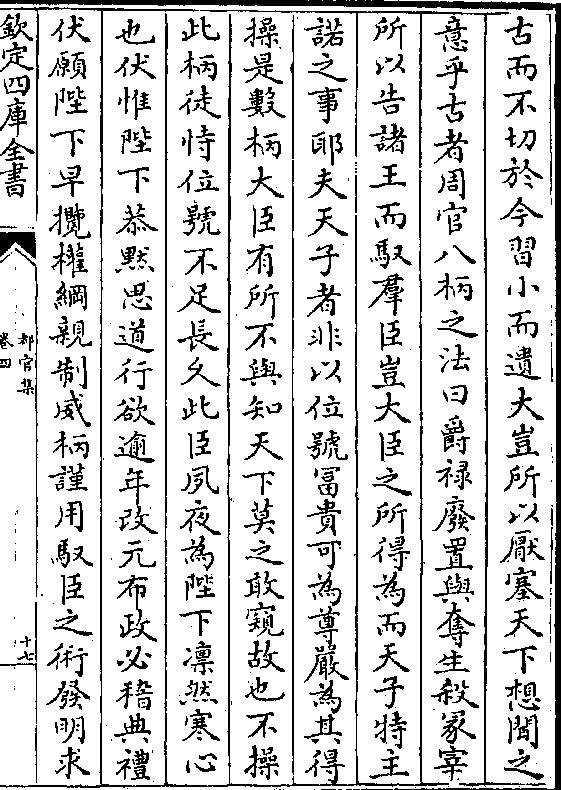 古而不切於今習小而遺大豈所以厭塞天下想聞之
意乎古者周官八柄之法曰爵禄廢置與奪生殺冢宰
所以告諸王而馭羣臣豈大臣之所得為而天子特主
諾之事耶夫天子者非以位號冨貴可為尊嚴為其得
操是數柄大臣有所不與知天下莫之敢窺故也不操
此柄徒恃位號不足長久此臣夙夜為陛下凛然寒心
也伏惟陛下恭黙思道行欲逾年改元布政必稽典禮
伏願陛下早攬權綱親制威柄謹用馭臣之術發明求
欽定四庫全書
都官集
卷四
十七